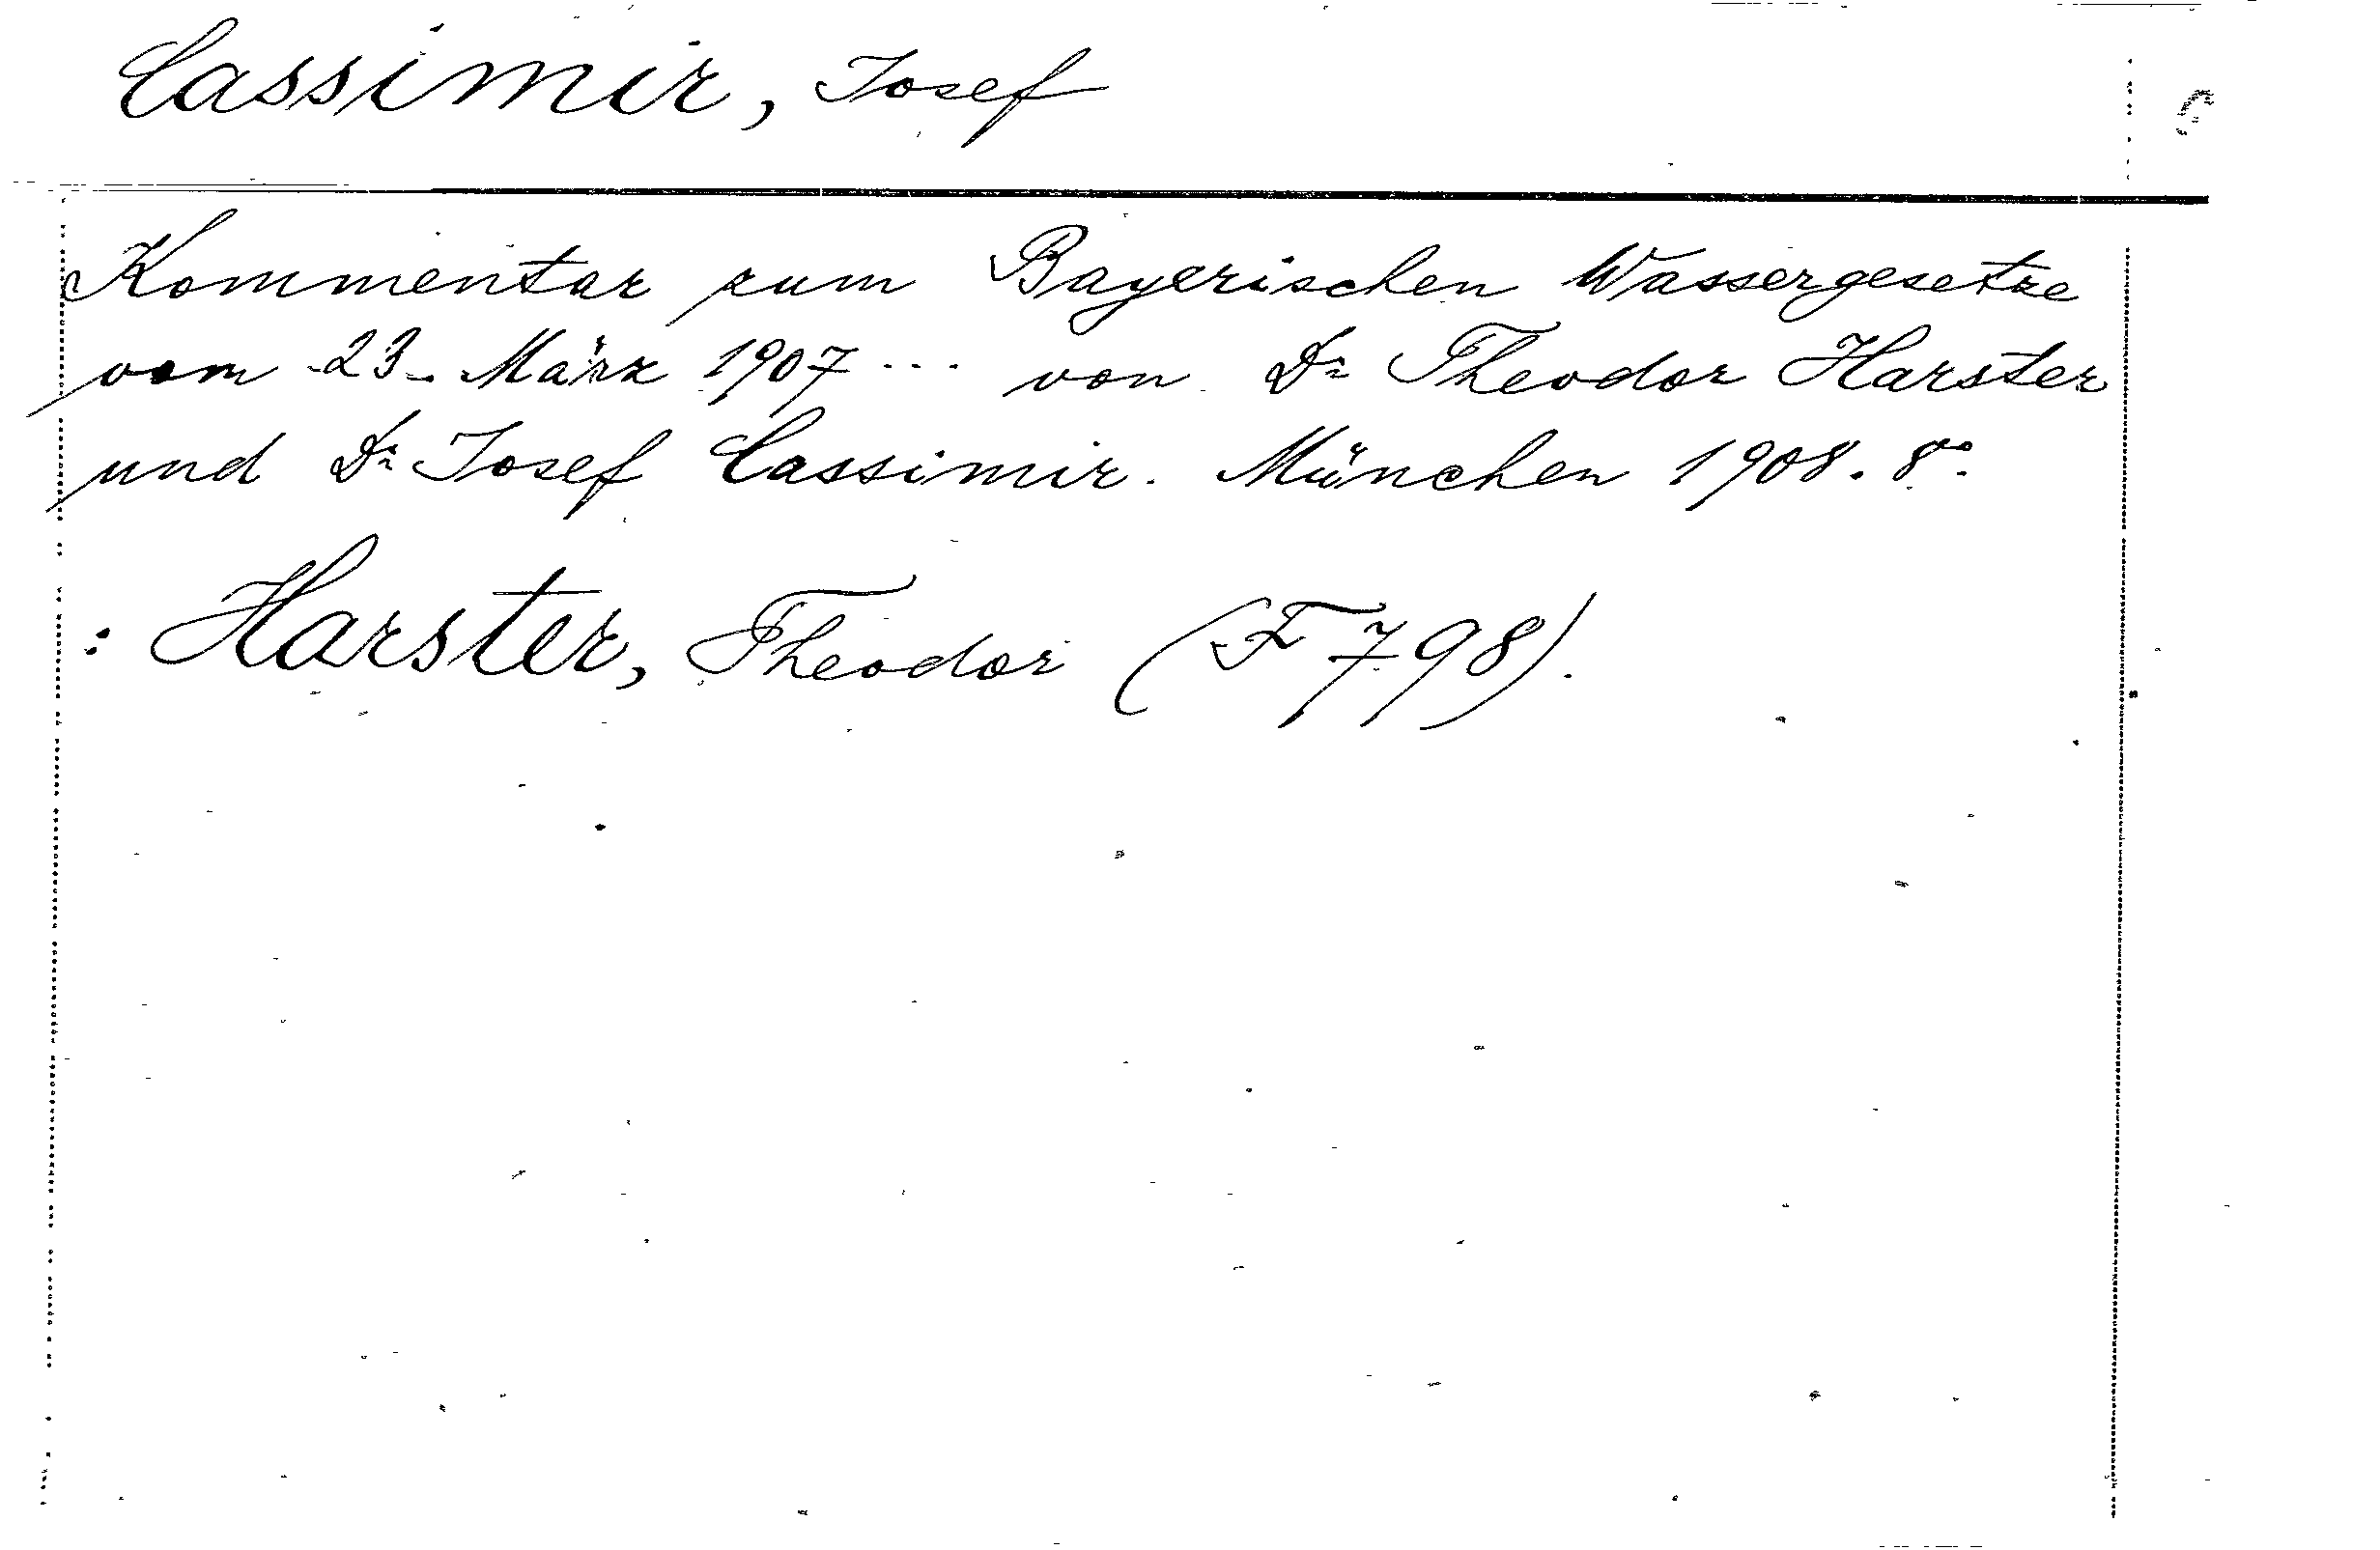 Cassimir, Josef
Kommentar zum Bayerischen Wassergesetze
vom 23. März 1907 ... von Dr Theodor Harster
und Dr Josef Cassimir. München 1908. 8º.
: Harster, Theodor (F 798).